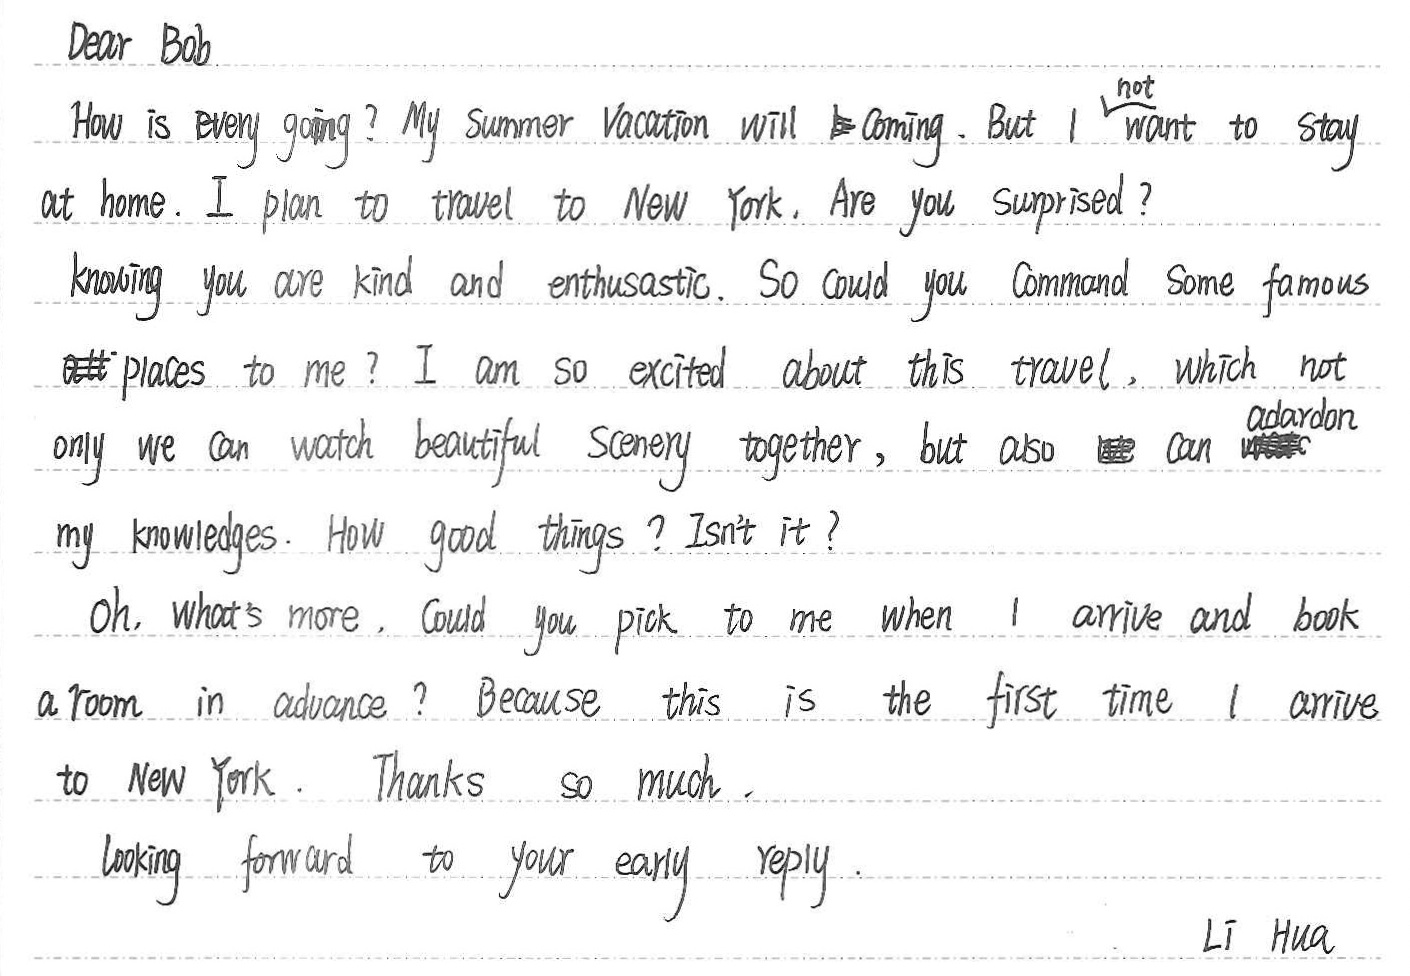 Dear Bob
How is every going? My summer vacation will coming. But I not want to stay
at home. I plan to travel to New York. Are you surprised?
knowing you are kind and enthusastic. So could you command some famous
places to me? I am so excited about this travel, which not
only we can watch beautiful scenery together, but also can adardon
my knowledges. How good things? Isn't it?
Oh, what's more, could you pick to me when I arrive and book
a room in advance? Because this is the first time I arrive
to New York. Thanks so much.
looking forward to your early reply.
Li Hua